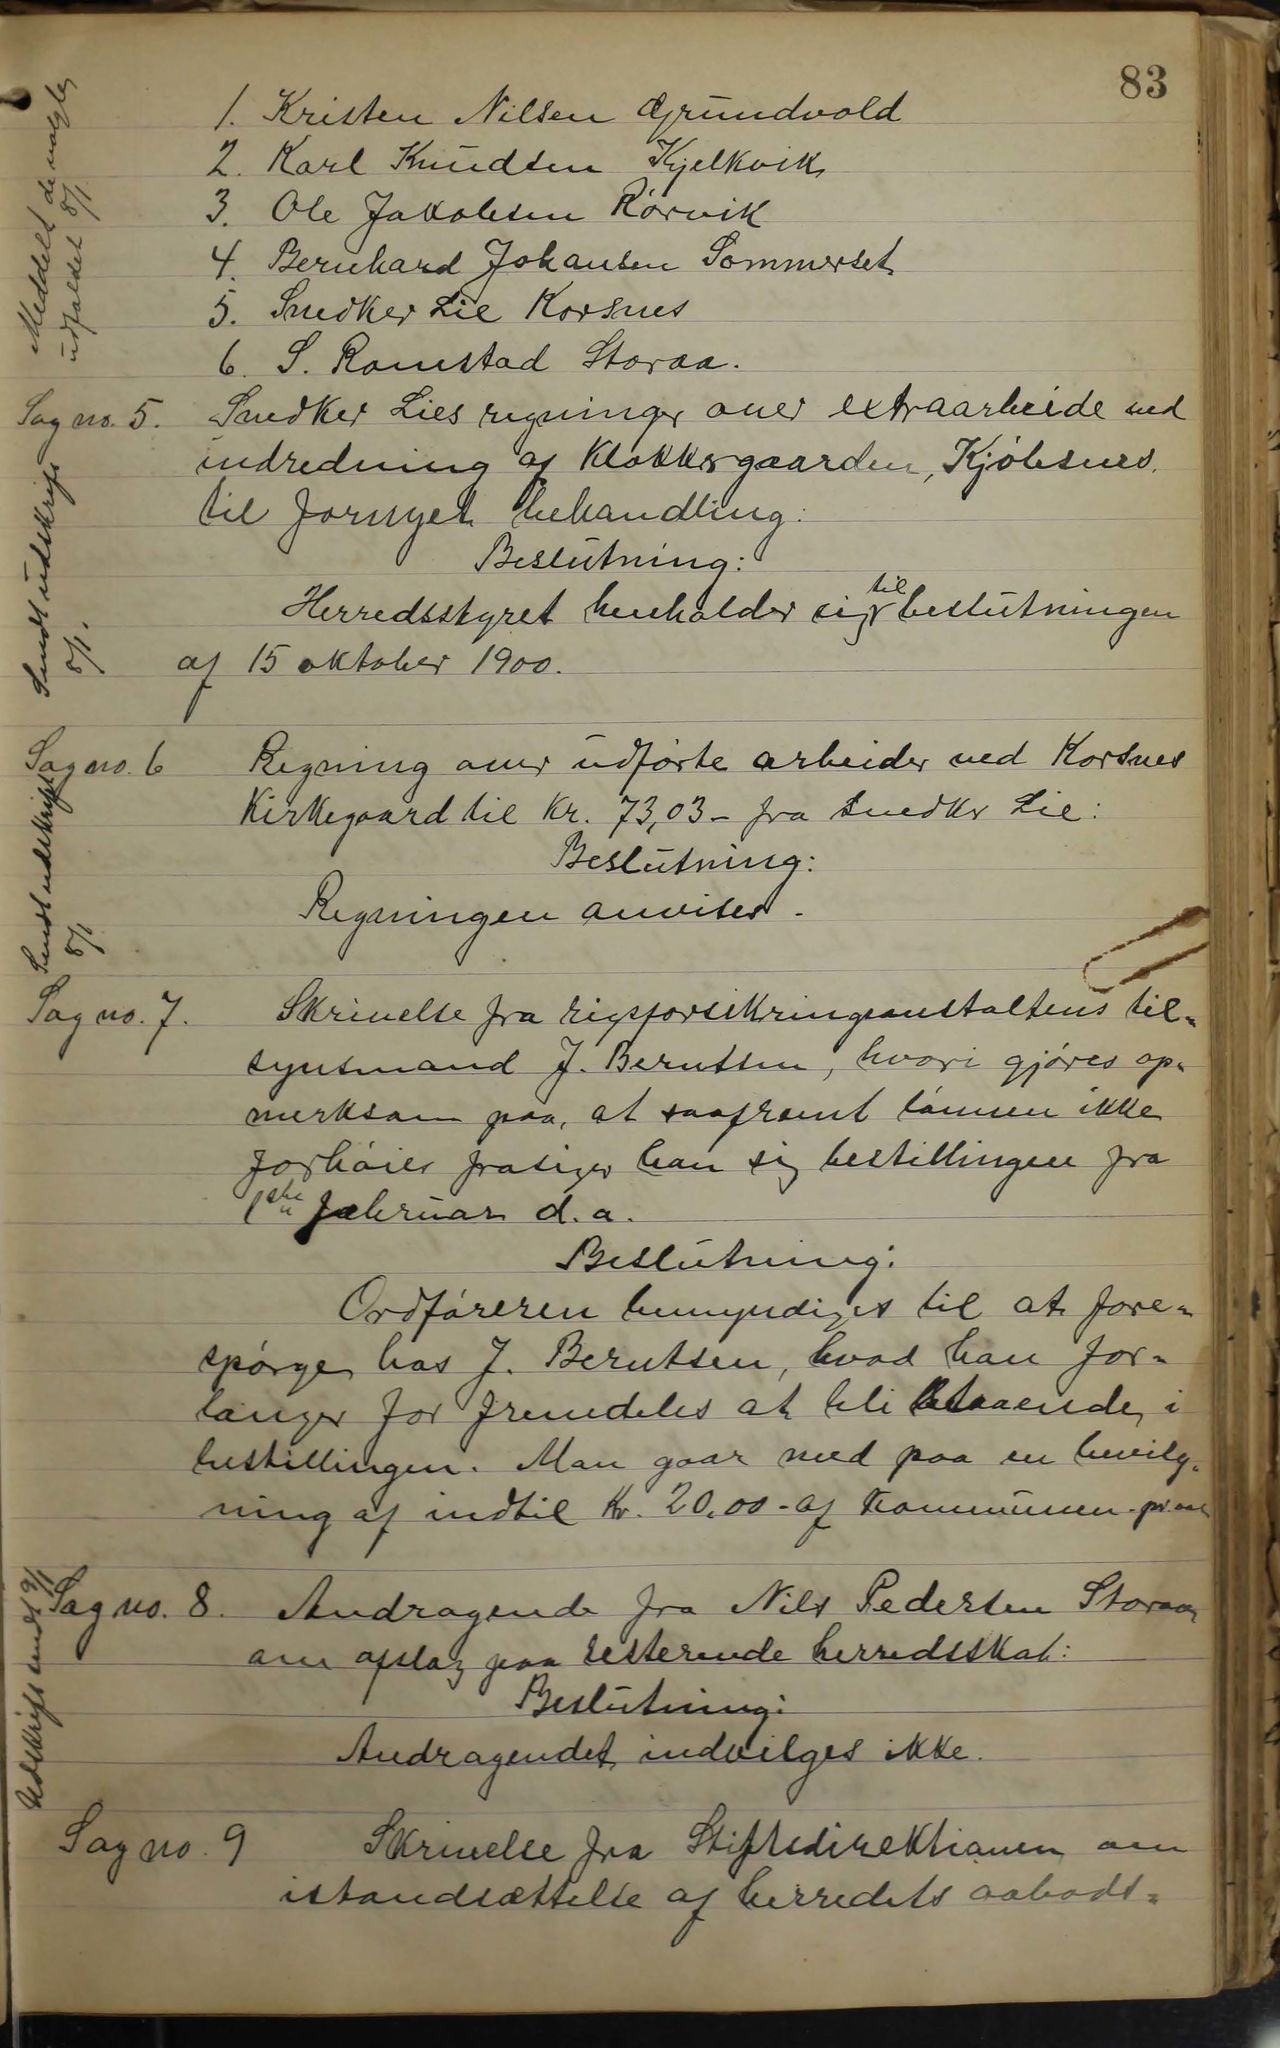 83
1. Kristen Nilsen Grundvold
2. Karl Knudsen Kjelkvik
3. Ole Jakobsen Rørvik
4. Bernhard Johansen Sommerset
5. Snedker Lie Korsnes
6. S. Romstad Storaa.
Meddelt de valgte
udfaldet 8/1
Sag no. 5. Snedker Lies regninger over extraarbeide ved
indredning af Klokkergaarden, Kjøbsnes.
til fornyet behandling:
Beslutning:
Herredsstyret henholder sig til beslutningen
af 15 oktober 1900.
Sendt udskrift
8/1.
Sag no. 6 Regning over udførte arbeider ved Korsnes
Kirkegaard til Kr. 73,03 - fra Snedker Lie:
Beslutning:
Regningen anvises.
Sendt udskrift
8/1
Sag no. 7. Skrivelse fra rigsforsikringsanstaltens til-
synsmand J. Berntsen, hvori gjøres op-
merksom paa, at saafremt lønnen ikke
forhøies frasiger han sig bestillingen fra
1ste februar d. a.
Beslutning:
Ordføreren bemyndiges til at fore-
spørge hos J. Berntsen, hvad han for-
langer for fremdeles at bli staaende i
bestillingen. Man gaar med paa en bevilg-
ning af indtil Kr. 20,00 - af kommunen pr. aar
Sag no. 8. Andragende fra Nils Pedersen Storaa
om afslag paa resterende herredsskat:
Beslutning:
Andragendet indvilges ikke.
Udskrift sendt 9/1
Sag no. 9 Skrivelse fra Stiftsdirektionen om
istandsættelse af herredets aabods-